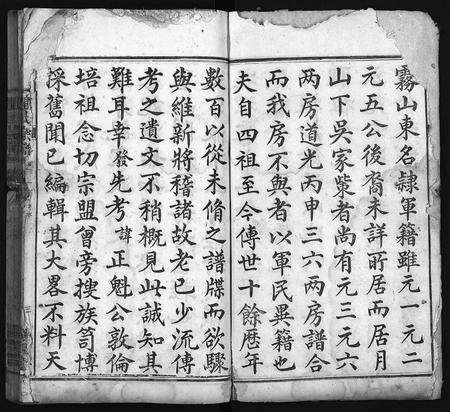 霧山東名隷軍籍雖元一元二
元五公後裔未詳所居而居月
山下吳家業者尚有元三元六
兩房道光丙申三六兩房譜合
而我房不與者以軍民異籍也
夫自四祖至今傳世十餘歷年
數百以從未脩之譜牒而欲驟
與維新將稽諸故老已少流傳
考之遺文不稍概見此誠知其
難耳幸發先考諱正魁公敦倫
培祖念切宗盟曾旁搜族笥博
採舊聞已編輯其大畧不料天